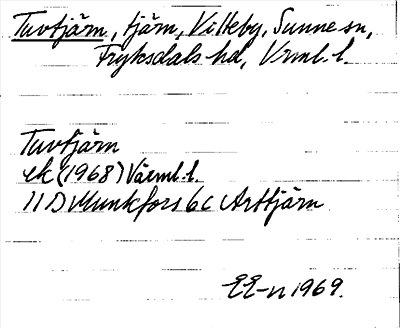 Tuvtjärn, tjärn, Villeby, Sunne sn,
Fryksdals hd, Vrml. l.
Tuvtjärn
ek (1968) Värml. l.
11 D Munkfors 6c Arttjärn
EE-n 1969.